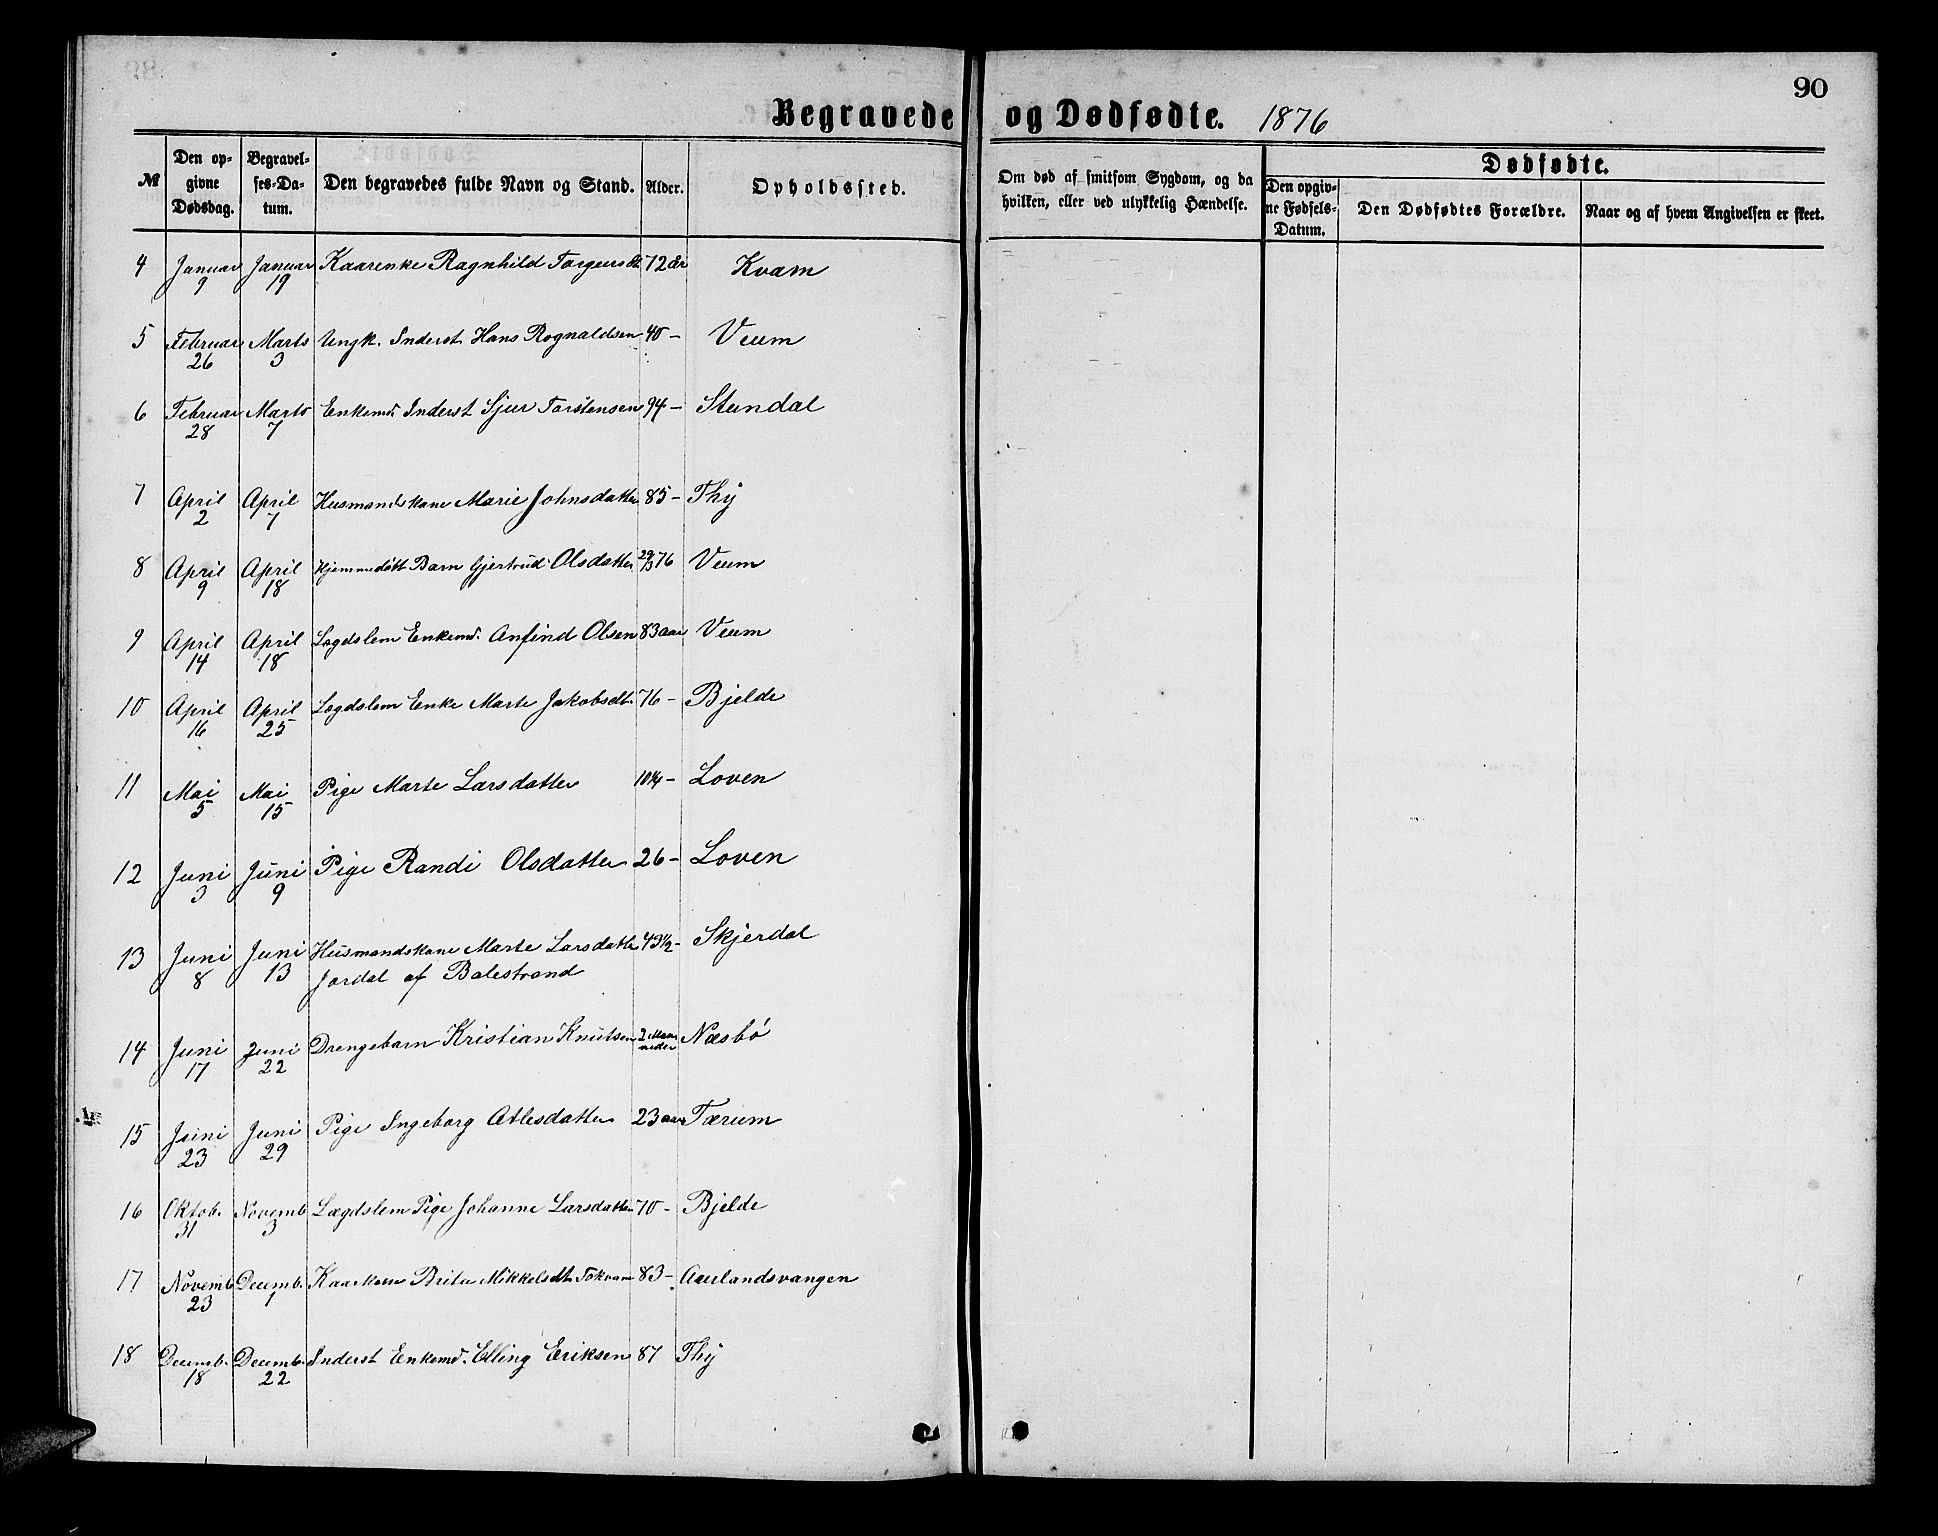 90
Begravede og Dødfødte. 1876
№ Den opgivne Dødsdag. Begravelses-Datum. Den begravedes fulde Navn og Stand. Alder. Opholdssted. Om død af smitsom Sygdom, og da hvilken, eller ved ulykkelig Hændelse. Dødfødte. Den opgivne Fødsels-Datum. Den Dødfødtes Forældre. Naar og af hvem Angivelsen er skeet.
4 Januar 9 Januar 19 Kaarenke Ragnhild Torgersdt 72 år Kvam
5 Februar 26 Marts 3 Ungk. Inderst Hans Rognaldsen 40 - Veum
6 Februar 28 Marts 7 Enkemd. Inderst Sjur Torstensen 94 - Stundal
7 April 2 April 7 Husmandskone Marie Johnsdatter 85 - Thy
8 April 9 April 18 Hjemmedøbt Barn Gjertrud Olsdatter 29/3 76 Veum
9 April 14 April 18 Lægdslem Enkemd. Anfind Olsen 83 aar Veum
10 April 16 April 25 Lægdslem Enke Marte Jakobsdt. 76 - Bjelde
11 Mai 5 Mai 15 Pige Marte Larsdatter 10 1/4 - Loven
12 Juni 3 Juni 9 Pige Randi Olsdatter 26 - Loven
13 Juni 8 Juni 13 Husmandskone Marte Larsdatter 49 1/2 - Skjerdal
Jordal af Balestrand
14 Juni 17 Juni 22 Drengebarn Kristian Knutsen 2 Maaneder Næsbø
15 Juni 23 Juni 29 Pige Ingeborg Atlesdatter 23 aar Tærum
16 Oktob. 31 Novemb 3 Lægdslem Pige Johanne Larsdatter 70 - Bjelde
17 Novemb 23 Decemb. 1 Kaarkone Brita Mikkelsdt. Tokvam 83 - Aurlandsvangen
18 Decemb. 18 Decemb. 22 Inderst Enkemd. Elling Eriksen 87 Thy